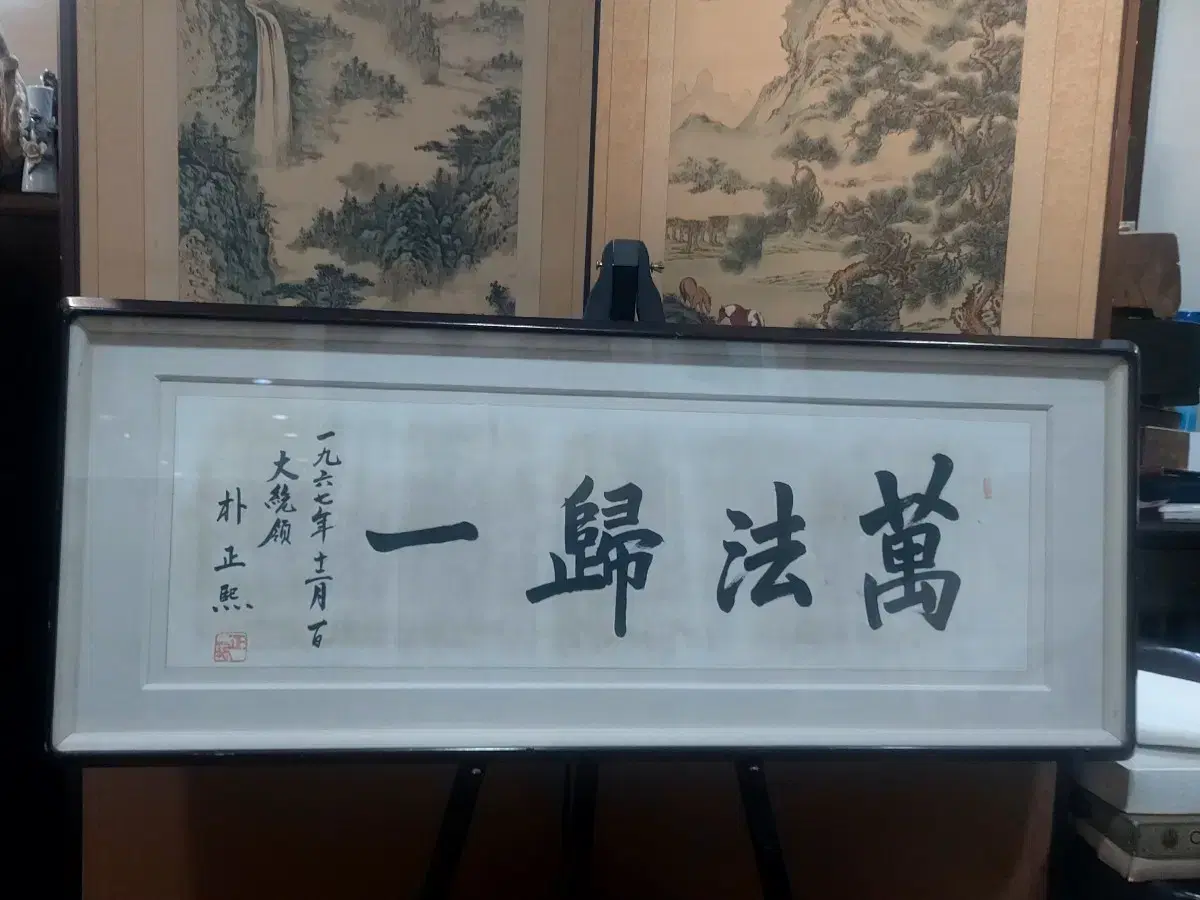 萬法歸一
一九六七年 十二月 一日
大統領
朴正熙